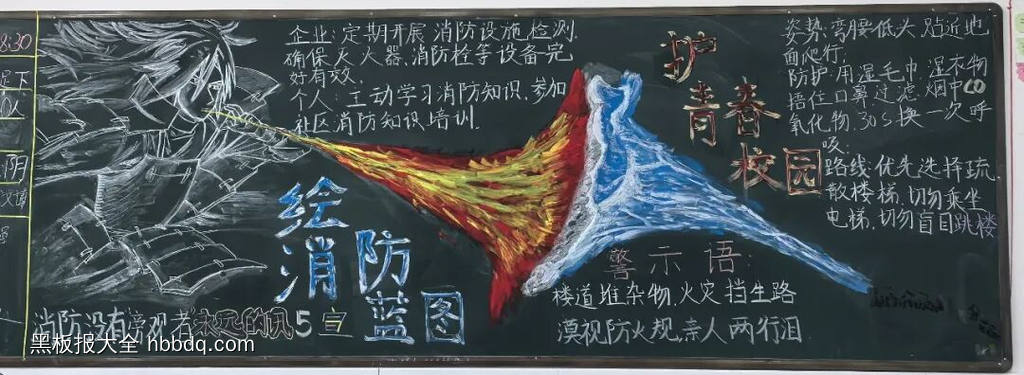 8:30
企业:定期开展消防设施检测.
确保灭火器,消防栓等设备完
好有效.
个人:主动学习消防知识.参加
社区消防知识培训.
护
青春
校园
姿势:弯腰低头 贴近地
面爬行.
防护:用湿毛巾.湿衣物
捂住口鼻过滤.烟中CO
氧化物.30s换一次呼
吸:
路线:优先选择疏
散楼梯.切勿乘坐
电梯,切勿盲目跳楼
绘
消防
蓝图
警示语:
楼道堆杂物,火灾挡生路
漠视防火规,亲人两行泪
消防没有旁观者
黑板报大全 hbbdq.com